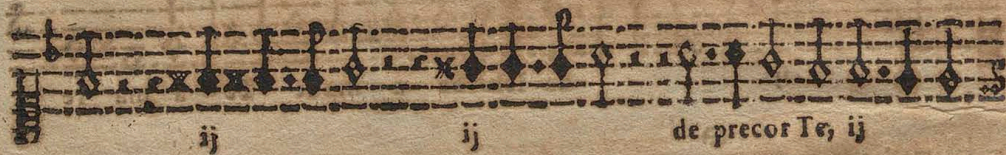 ij ij de precor Te, ij